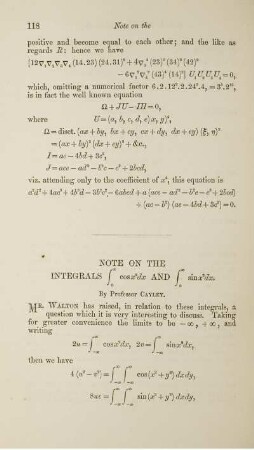 118 Note on the
positive and become equal to each other; and the like as
regards R: hence we have
which, omitting a numerical factor 6.2.12².2.24².4, = 3⁴.2¹⁴,
is in fact the well known equation
Ω + JU − IH = 0,
where U = (a, b, c, d, e)(x, y)⁴,
Ω = disct. (ax + by, bx + cy, cx + dy, dx + ey)(ξ, η)³
= (ax + by)² (dx + ey)² + &c.,
I = ae − 4bd + 3c²,
J = ace − ad² − b²e − c³ + 2bcd,
viz. attending only to the coefficient of x⁴, this equation is
a²d² + 4ac³ + 4b³d − 3b²c² − 6abcd + a (ace − ad² − b²e − c³ + 2bcd)
+ (ac − b²) (ae − 4bd + 3c²) = 0.
NOTE ON THE
INTEGRALS ∫ cos x² dx AND ∫ sin x² dx.
By Professor CAYLEY.
MR. WALTON has raised, in relation to these integrals, a
question which it is very interesting to discuss. Taking
for greater convenience the limits to be −∞, +∞, and
writing
2u = ∫ cos x² dx, 2v = ∫ sin x² dx,
then we have
4 (u² − v²) = ∫ ∫ cos (x² + y²) dx dy,
8uv = ∫ ∫ sin (x² + y²) dx dy,